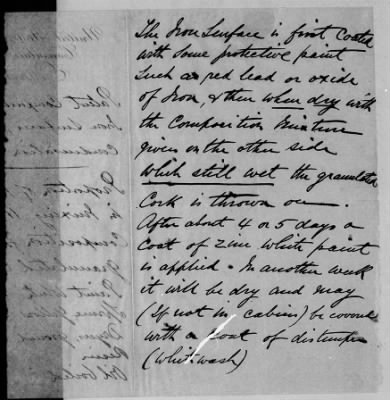 The Iron Surface is first coated
with some protective paint
Such as red lead or oxide
of Iron, & then when dry with
the Composition Mixture
given on the other side
which still wet the granulated
Cork is thrown on —
After about 4 or 5 days a
coat of zinc white paint
is applied - In another week
it will be dry and may
(If not in cabins) be covered
with a Coat of distemper
(Whitewash)
Patent Compo
Iron Surfaces
Condensation
Proportion
in Mixing
Composition